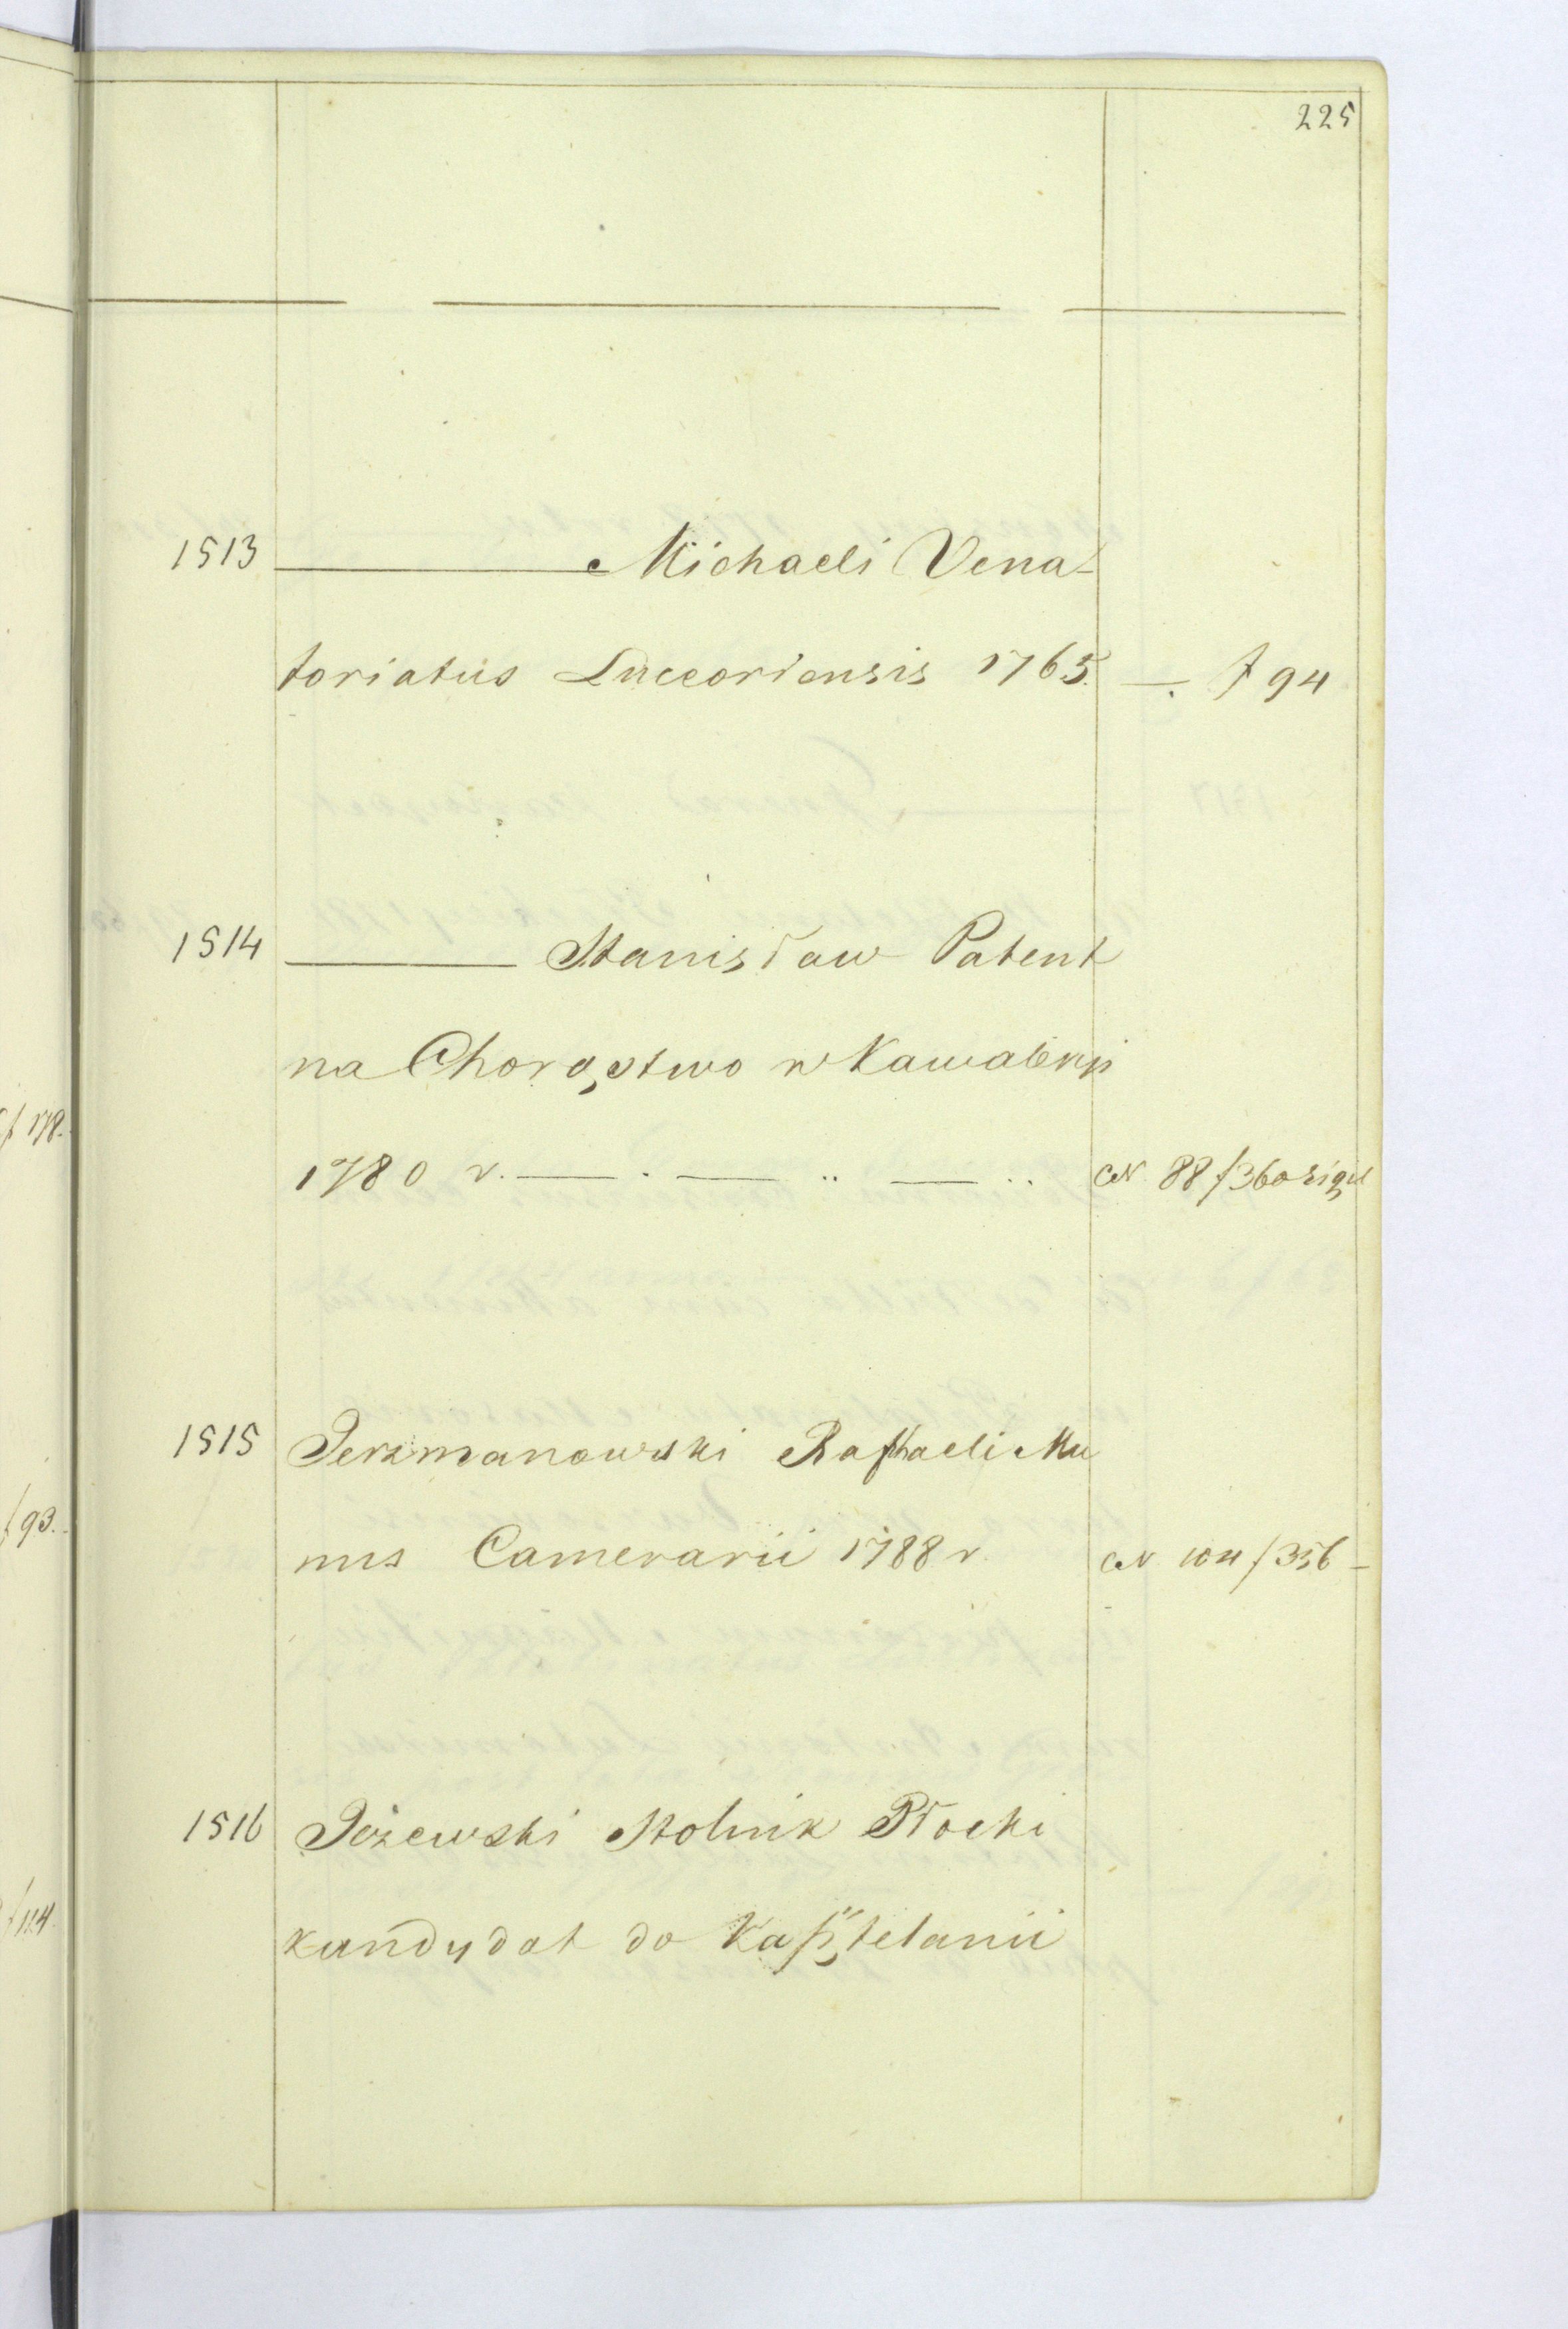 225
1513 ——— Michaeli Vena-
toriatus Luceoriensis 1765. —. f 94
1514 ——— Stanisław Patent
na Chorąstwo w Kawaleryi
1780 r. — . — .. — .. N 88 f 36
1515 Jerzmanowski Raphaeli Mu
nus Camerarii 1788 r. N 104 f 356 —
1516 Jeżewski Stolnik Płocki
kandydat do Kasztelanii
f 178.
f 93.
f 114